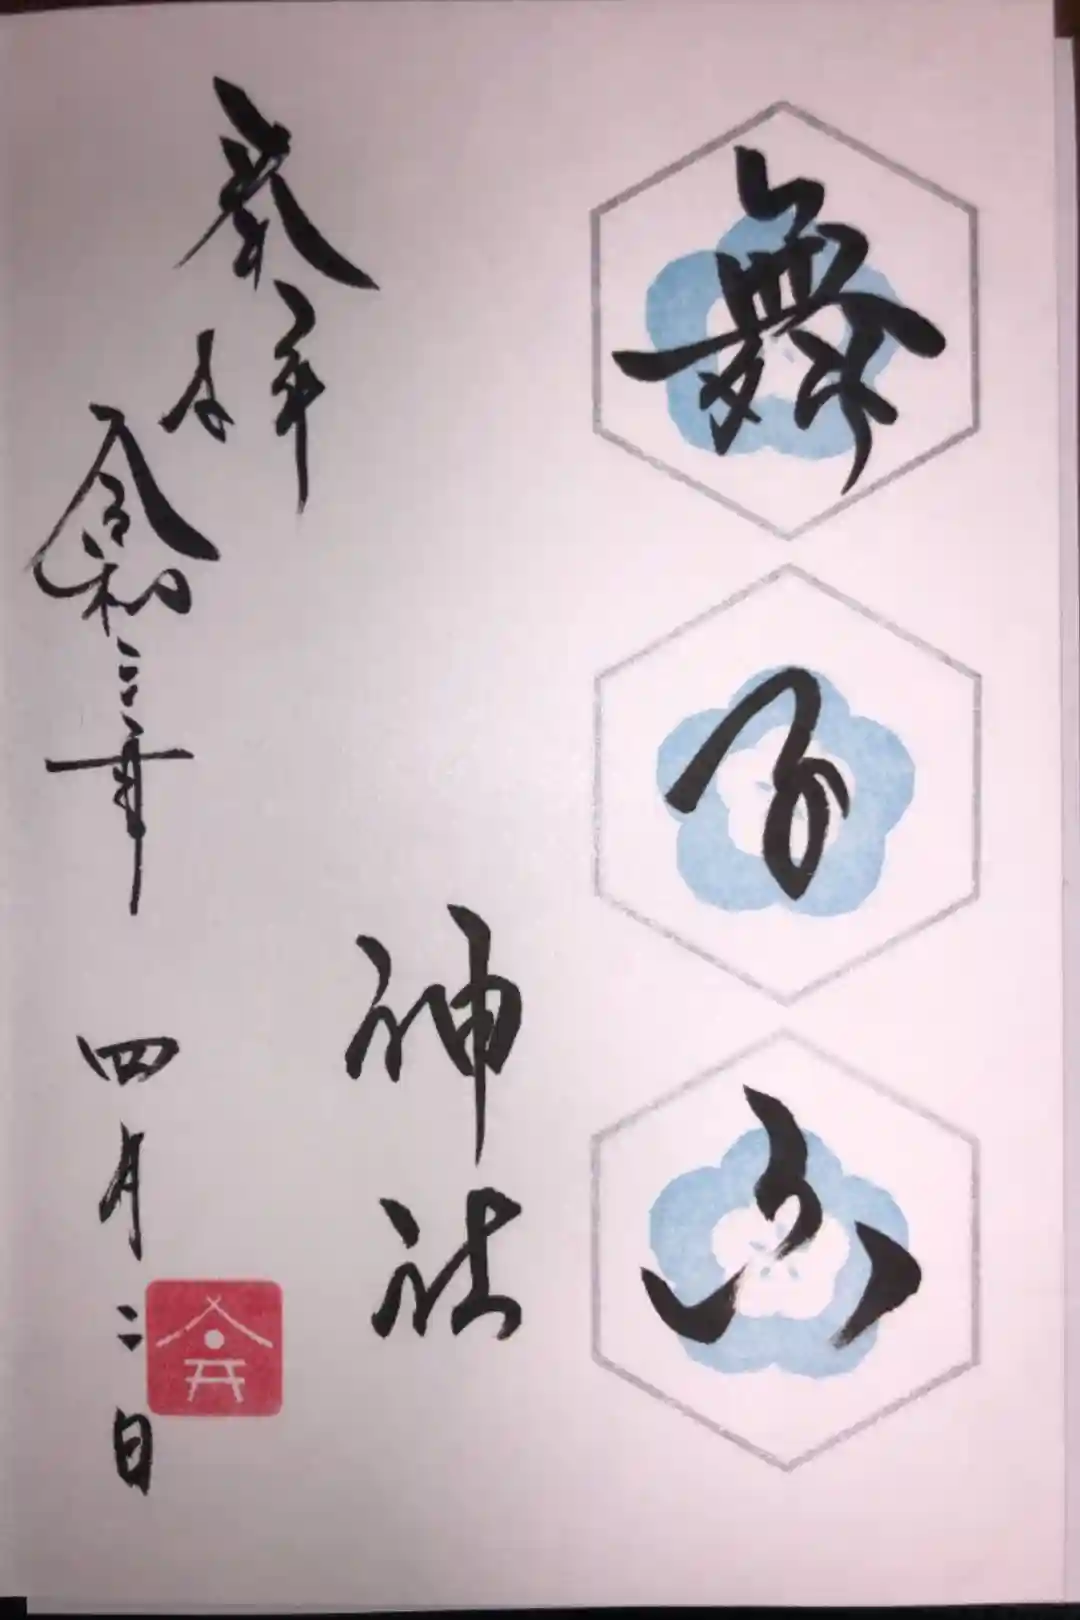 舞子六
神社
奉拝
令和三年 四月二日